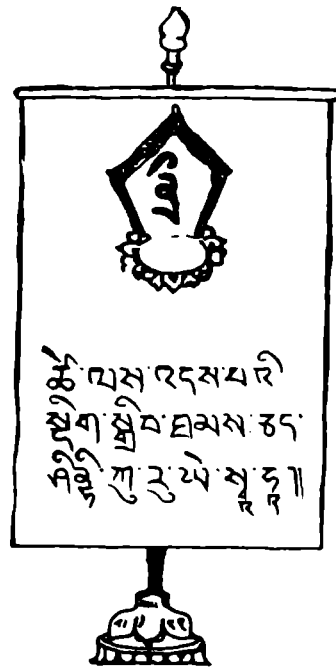 ཚེ་ལས་འདས་པའི
སྡིག་སྒྲིབ་ཐམས་ཅད་
ཤིནྟིཾ་ཀུ་རུ་ཡེ་སྭཱ་ཧཱ༎